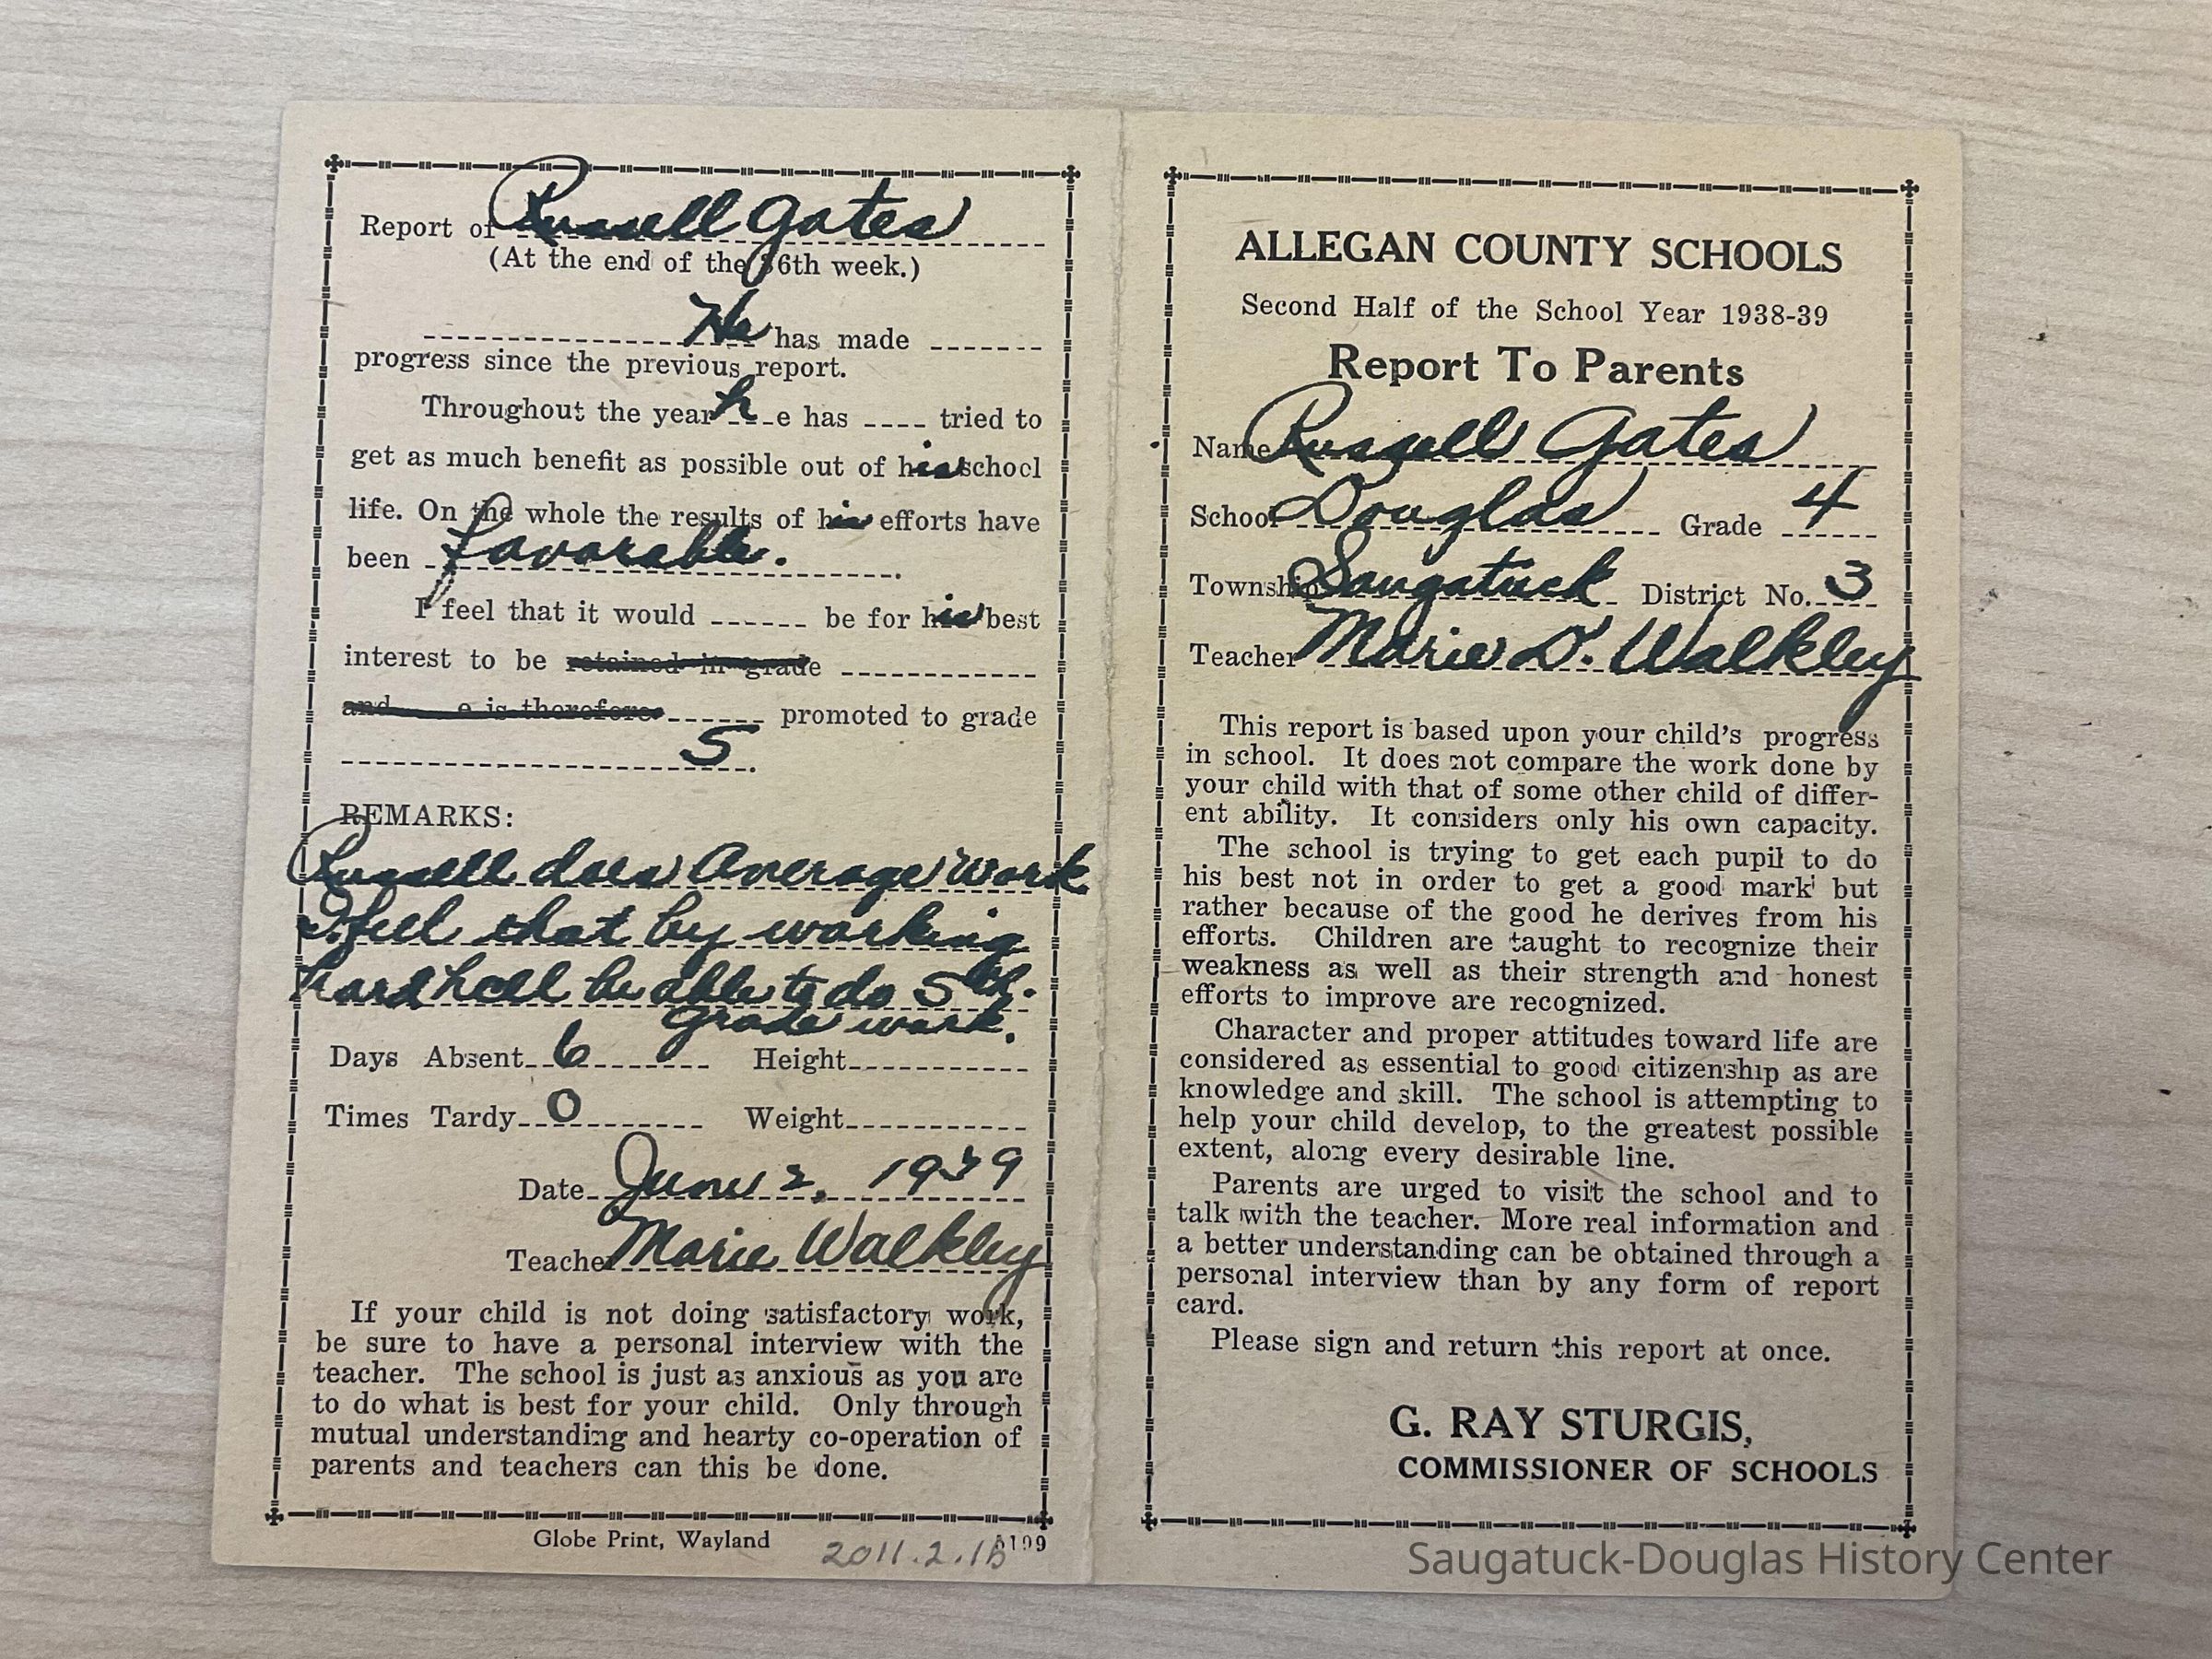 Report of Russell Gates
(At the end of the 36th week.)
He has made
progress since the previous report.
Throughout the year he has tried to
get as much benefit as possible out of his school
life. On the whole the results of his efforts have
been favorable.
I feel that it would be for his best
interest to be retained in grade
and e is therefore promoted to grade
5.
REMARKS:
Russell does Average Work
I feel that by working
hard hell be able to do 5th.
grade work.
Days Absent 6 Height
Times Tardy 0 Weight
Date June 2, 1939
Teacher Marie Walkley
If your child is not doing satisfactory work,
be sure to have a personal interview with the
teacher. The school is just as anxious as you are
to do what is best for your child. Only through
mutual understanding and hearty co-operation of
parents and teachers can this be done.
Globe Print, Wayland
ALLEGAN COUNTY SCHOOLS
Second Half of the School Year 1938-39
Report To Parents
Name Russell Gates
School Douglas Grade 4
Township Saugatuck District No. 3
Teacher Marie D. Walkley
This report is based upon your child's progress
in school. It does not compare the work done by
your child with that of some other child of differ-
ent ability. It considers only his own capacity.
The school is trying to get each pupil to do
his best not in order to get a good mark but
rather because of the good he derives from his
efforts. Children are taught to recognize their
weakness as well as their strength and honest
efforts to improve are recognized.
Character and proper attitudes toward life are
considered as essential to good citizenship as are
knowledge and skill. The school is attempting to
help your child develop, to the greatest possible
extent, along every desirable line.
Parents are urged to visit the school and to
talk with the teacher. More real information and
a better understanding can be obtained through a
personal interview than by any form of report
card.
Please sign and return this report at once.
G. RAY STURGIS,
COMMISSIONER OF SCHOOLS
Saugatuck-Douglas History Center